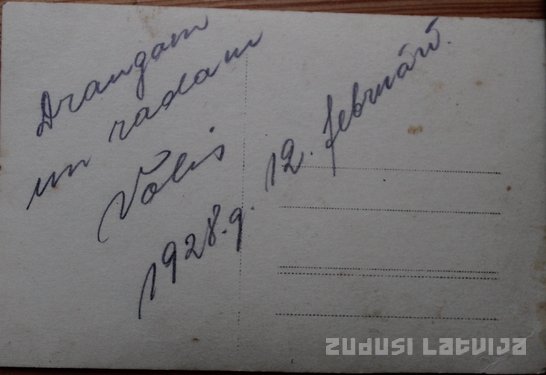 Draugam
un radam
Volis
1928.g. 12. februārī.
ZUDUSI LATVIJA